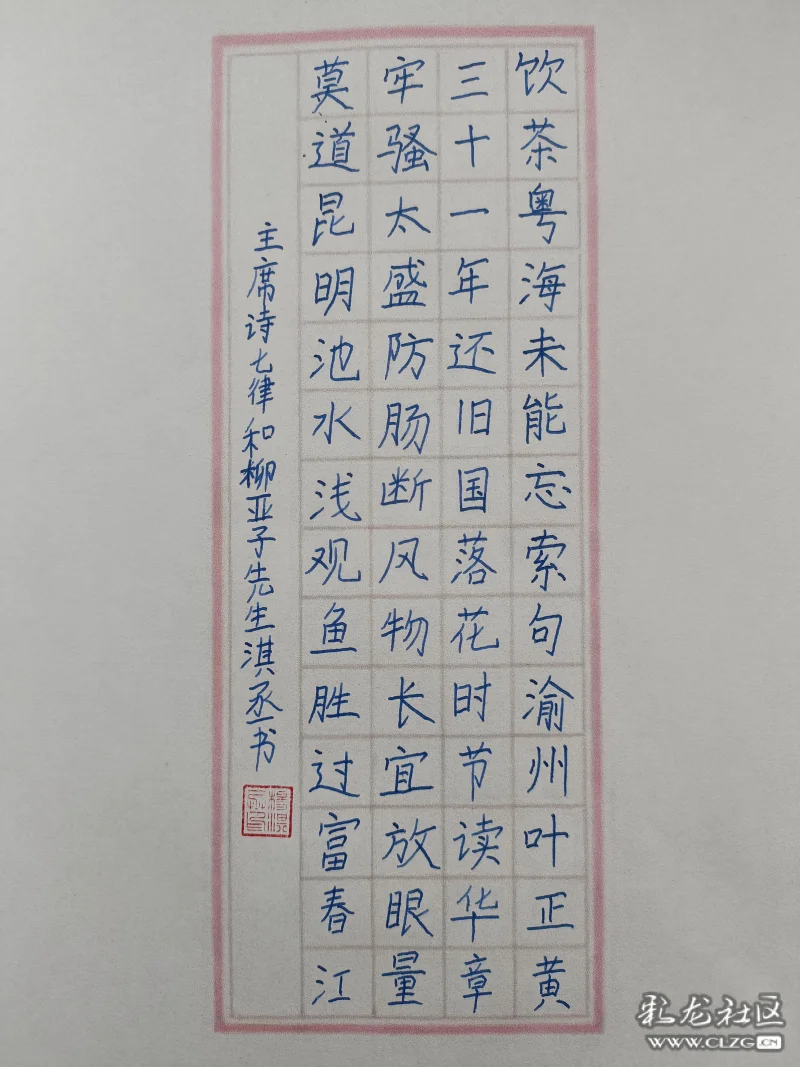 饮茶粤海未能忘索句渝州叶正黄
三十一年还旧国落花时节读华章
牢骚太盛防肠断风物长宜放眼量
莫道昆明池水浅观鱼胜过富春江
主席诗七律和柳亚子先生淇丞书
彩龙社区
WWW.CLZG.CN